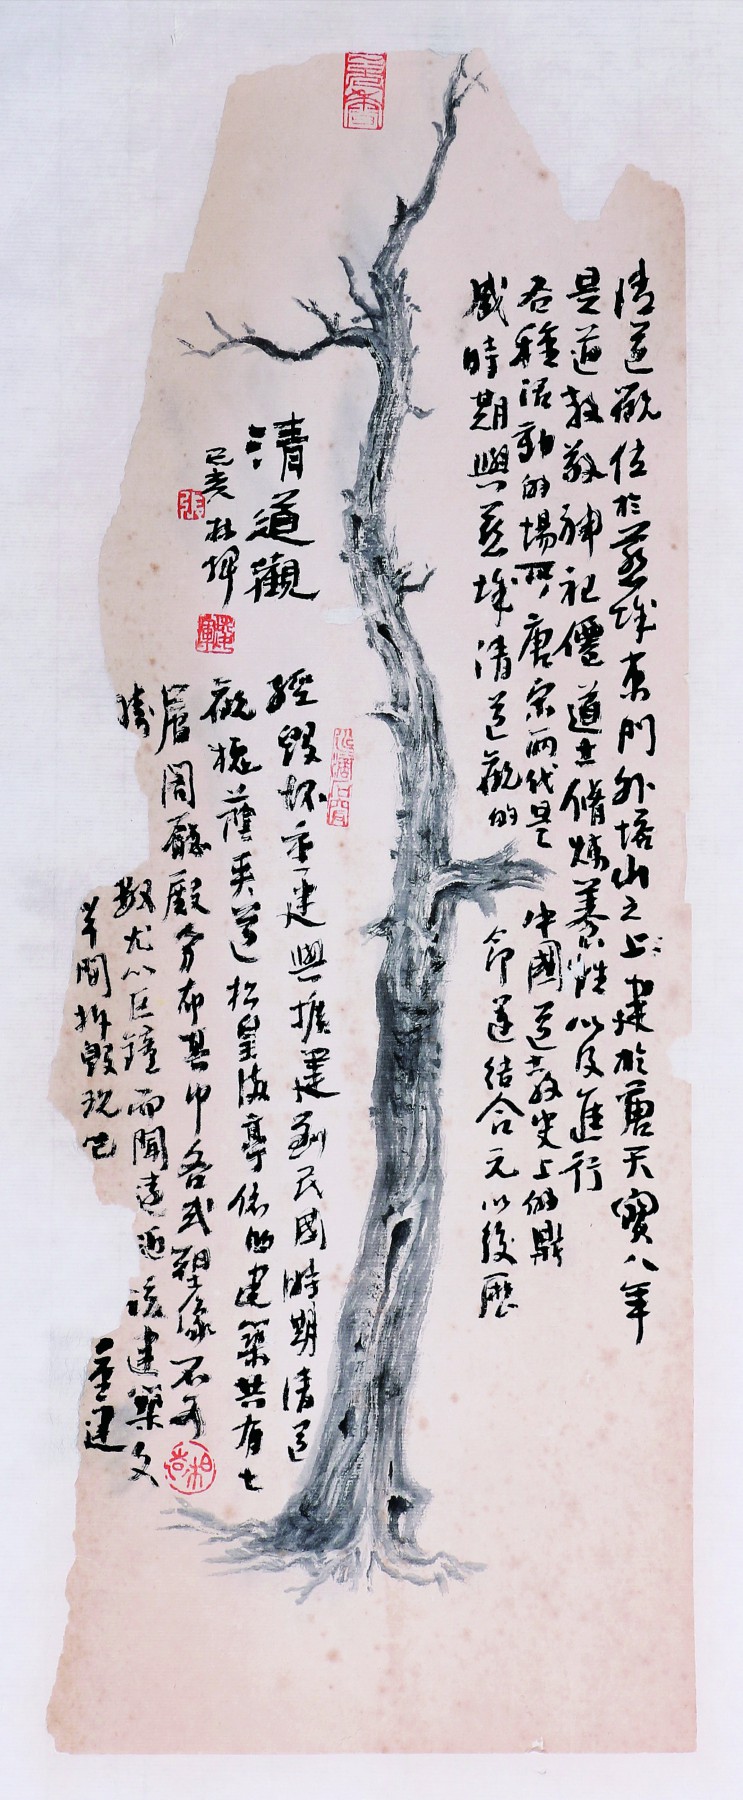 清道觀位於慈城東門外塔山之上建於唐天寶八年
是道教敬神祀僊道士脩煉養性以及進行
各種活動的場所唐宋兩代是中國道教史上的鼎
盛時期與慈城清道觀的命運結合元以後歷
經毀坏重建與擴建到民國時期清道
觀槐蔭夾道松的建築共有七
層閣廳殿分布其中各式塑像不可
勝數尤以巨鐘而聞遠近該建築文
革間拆毀現已重建
清道觀
己亥
張